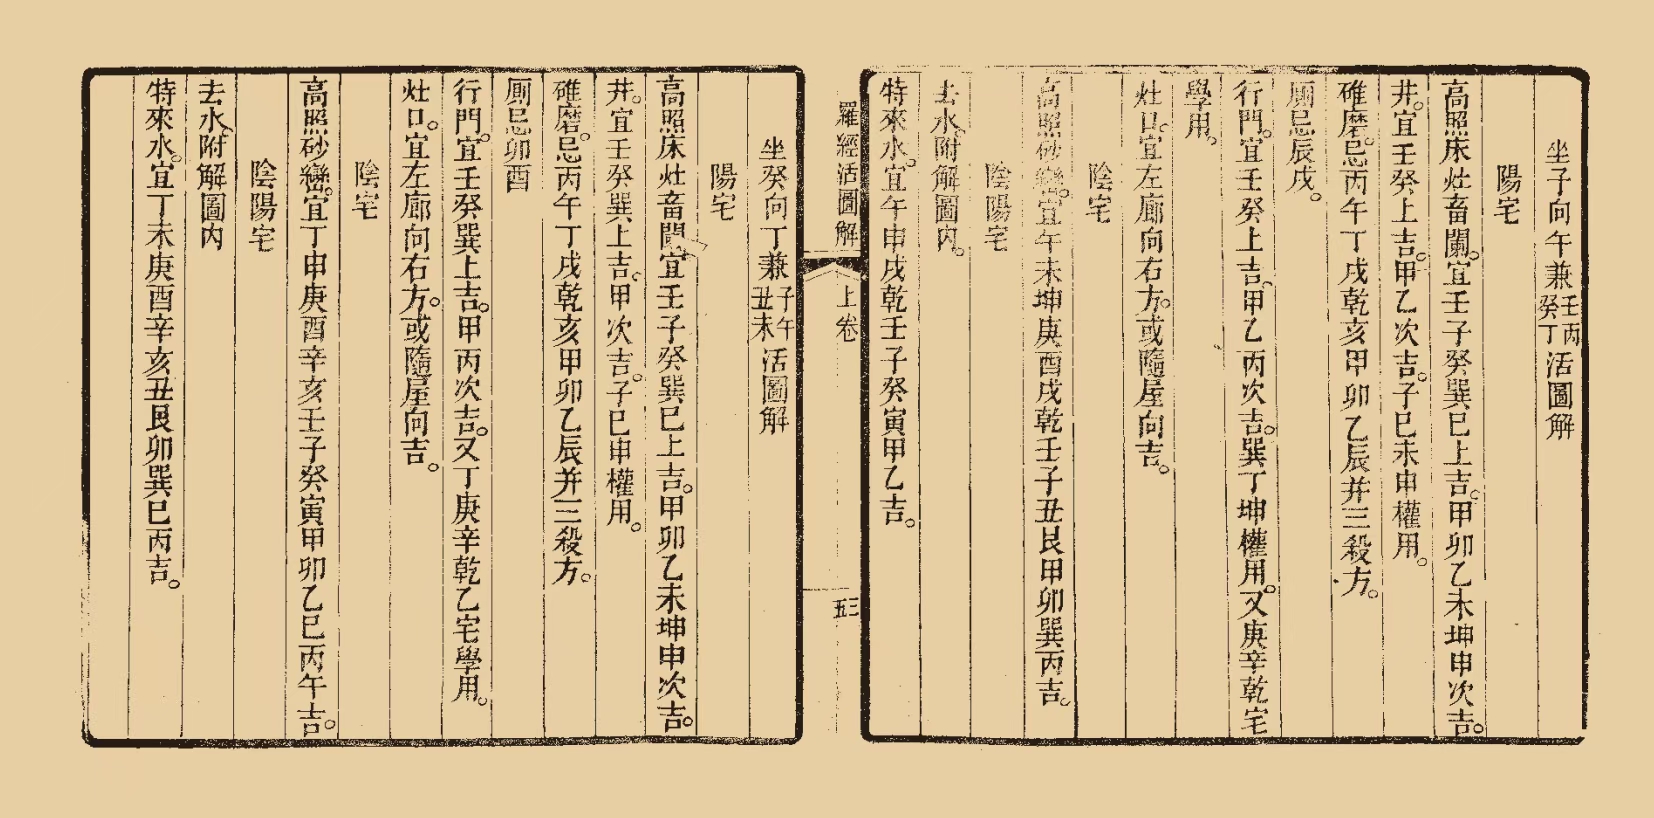 坐子向午兼壬丙癸丁活圖解
陽宅
高照床灶畜闌。宜壬子癸巽巳上吉。甲卯乙未坤申次吉。
井。宜壬癸上吉。甲乙次吉。子巳未申權用。
碓磨。忌丙午丁戌乾亥甲卯乙辰并三殺方。
厠忌辰戌。
行門。宜壬癸上吉。甲乙丙次吉。巽丁坤權用。又庚辛乾宅
學用。
灶口。宜左廊向右方。或隨屋向吉。
陰宅
高照砂巒。宜午未坤庚酉戌乾壬子丑艮甲卯巽丙吉。
陰陽宅
去水。附解圖內。
特來水。宜午申戌乾壬子癸寅甲乙吉。
羅經活圖解
上卷
三五
坐癸向丁兼子午丑未活圖解
陽宅
高照床灶畜闌宜壬子癸巽巳上吉。甲卯乙未坤申次吉。
井。宜壬癸巽上吉。甲次吉。子巳申權用。
碓磨。忌丙午丁戌乾亥甲卯乙辰并三殺方。
厠忌卯酉
行門。宜壬癸巽上吉。甲丙次吉。又丁庚辛乾乙宅學用。
灶口。宜左廊向右方。或隨屋向吉。
陰宅
高照砂巒。宜丁申庚酉辛亥壬子癸寅甲卯乙巳丙午吉。
陰陽宅
去水。附解圖內
特來水。宜丁未庚酉辛亥丑艮卯巽巳丙吉。